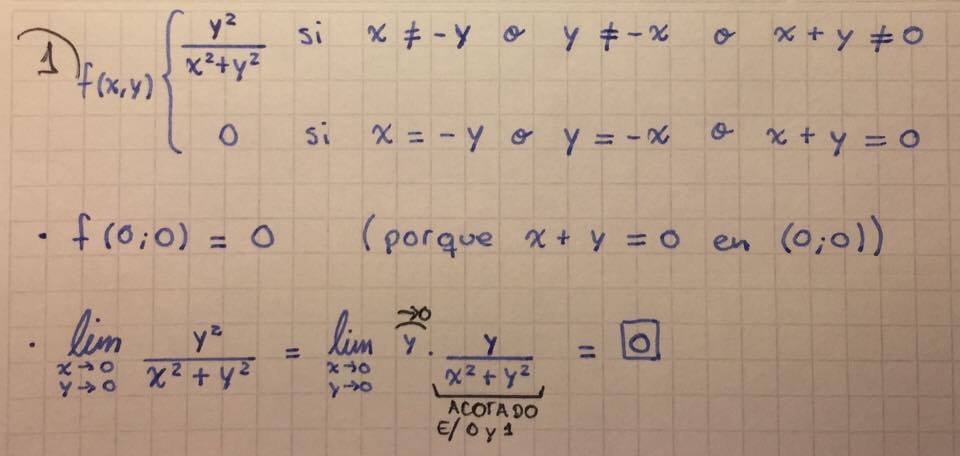 1) f(x,y) { y²/(x²+y²) si x ≠ -y o y ≠ -x o x + y ≠ 0
0 si x = -y o y = -x o x + y = 0
• f(0;0) = 0 (porque x + y = 0 en (0;0))
• lim x→0 y→0 y²/(x² + y²) = lim x→0 y→0 y →0 · y/(x² + y²) = 0
ACOTADO
E/ 0 y 1